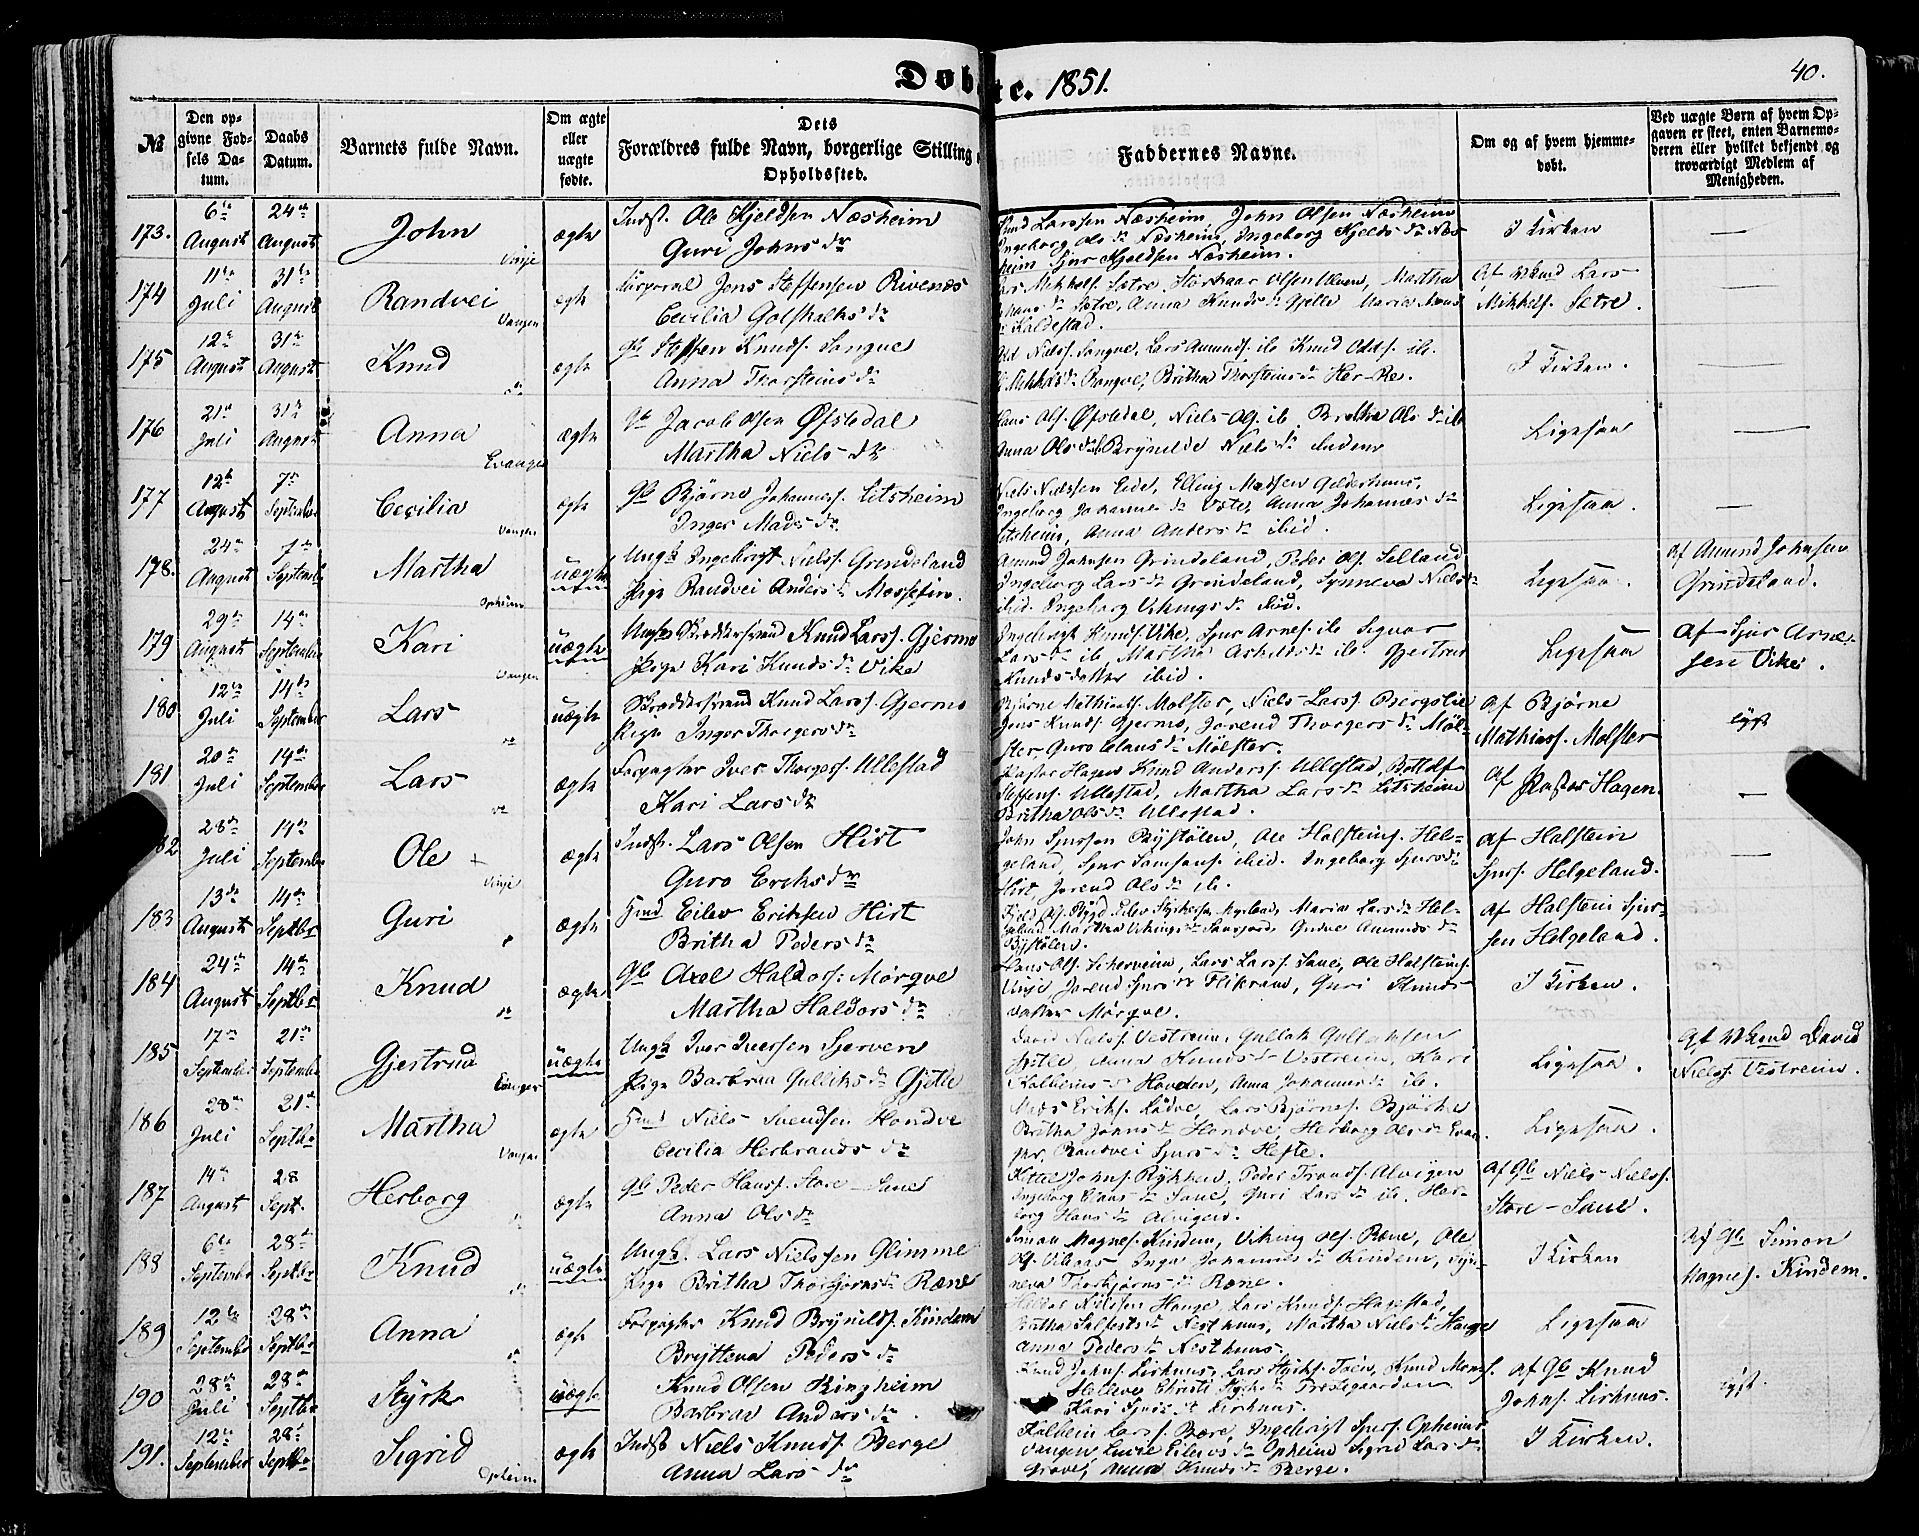 Døbte. 1851.
40.
№
Den opgivne Fødsels Datum.
Daabs Datum.
Barnets fulde Navn.
Om ægte eller uægte fødte.
Dets Forældres fulde Navn, borgerlige Stilling Opholdssted.
Faddernes Navne.
Om og af hvem hjemmedøbt.
Ved uægte Børn af hvem Opgaven er skeet, enten Barnemoderen eller hvilket bekjendt og troværdigt Medlem af Menigheden.
173. 6te August 24de August John Vinje ægte
Indst. Ole Kjeldsen Næsheim
Guri Johns dr
Knud Larssen Næsheim, John Olsen Næsheim
Ingeborg Ols dr Næsheim, Ingeborg Kjelds dr Næs-
heim Sjur Kjeldsen Næsheim.
I Kirken —
174 11te Juli 31te August Randvei Vangen ægte
Korporal Jens Steffensen Rivenæs
Cecilia Golsthalks dr
Lars Mikkels. Sætre, Olsen Ulven, Martha
dr Sætre, Anna Knuds dr Gjelle Maria Mons
dr Kaldestad.
Af Lars
Mikkels. Sætre. —
175 12te August 31te August Knud do ægte
Gb Steffen Knuds. Sangve
Anna Thorsteins dr
Odd Nielss. Sangve, Lars Amunds. ib Knud Odds. ib.
Mikkels dr Rongve, Britha Thorsteins dr Her-Re.
I Kirken. —
176 21de Juli 31te August Anna Evanger ægte
Gb Jacob Olsen Øfstedal
Martha Niels dr
Hans Ols. Øfstedal, Niels Ols. ib Britha Ols dr ib
Anna Ols dr Brynilde Niels dr
Ligesaa —
177 12te August 7de September Cecilia Vangen ægte
Gb Bjørne Johanness. Litsheim
Inger Mads dr
Niels Nielssen Eide, Elling Madsen Gjelderhuus,
Ingeborg Johannes dr Anna Johannes dr
Litsheim, Anna Anders dr ibid.
Ligesaa. —
178. 24de August 7de September Martha Opheim uægte
Ungk Ingebrigt Nielss. Grindeland
Pige Randvei Anders dr Mossefin.
Amund Johnsen Grindeland, Peder Ols. Selland
Ingeborg Lars dr Grindeland, Synneva Niels dr
ibid. Ingeborg Vikings dr ibid.
Ligesaa.
af Amund Johnsen
Grindeland.
179 29de August 14de September Kari Vangen uægte
Ungk Skræddersvend Knud Larss. Gjerme
Pige Kari Knuds dr Vike
Ingebrigt Knuds. Vike, Sjur Arnes. ib
Lars dr ib, Martha dr ib. Gjertrud
Knudsdatter ibid.
Ligesaa
Af Sjur Arne-
sen Vike.
180 12te Juli 14de September Lars do uægte
Skræddersvend Knud Larss. Gjerme
Pige Inger Thorgers dr
Bjørne Mathiass. Mølster, Niels Larss. Bergslie
Jens Knuds. Gjerme, Jorend Thorgers dr Møl-
ster, Guro dr Mølster.
af Bjørne
Mathiass. Mølster
181 20de Juli 14de September Lars do ægte
Forpagter Iver Thorgers. Ullestad
Kari Lars dr
Pastor Hagen Knud Anderss. Ullestad, Bottolf
Steffens. Ullestad, Martha Lars dr Litsheim
Britha Ols dr Ullestad.
af Pastor Hagen. —
182 28de Juli 14de September Ole + Vinje ægte
Indst. Lars Olsen Hirt
Guro Eriks dr
John Sjurssen Bystølen, Ole Halsteins. Hel-
geland, Sjur Samsons. ibid. Ingeborg Sjurs dr
Hirt, Jorend Ols dr ib.
af Halstein
Sjurs. Helgeland. —
183 13de August 14de Septbr Guri ægte
Hmd Eilev Eriksen Hirt
Britha Peders dr
Maria Lars dr Hel-
geland Martha Vikings dr Gudve Amunds dr
Bystølen.
af Halstein Sjur-
sen Helgeland.
184 24de August 14de Septbr Knud do ægte
Gb Axel Haldors: Mørqve
Martha Haldors dr
Hans Ols. Lars Larss. Saue, Ole Halsteins.
Vinje Jorend Sjurs dr Guri Knuds-
datter Mørqve.
I Kirken.
185 17de September 21de September Gjertrud Evanger uægte
Ungk Iver Iversen Gjerven
Pige Barbraa Gulliks dr Gjelle
David Nielss. Vestrein, Gullak Gullaksen
Gjelle, Anna Knuds dr Vestrein, Kari
Kolbeins dr Anna Johannes dr ib.
Ligesaa.
Af David
Nielss. Vestrein.
186 28de Juli 21de Septbr Martha Vangen ægte
Niels Svendsen Hondve
Cecilia Herbrands dr
Mads Eriks. Lødve, Lars Bjørnes. Bjørke
Britha Johns dr Hondve, Herborg Ols dr Evan-
ger, Randvei Sjurs dr Hefte.
Ligesaa.
187 14de August 28 Sept. Herborg do ægte
Gb Peder Hanss. Store-Saue
Anna Ols dr
Johns. Rykken, Peder Tronds. Alvigen
Ingeborg dr Saue, Guri Lars dr ib. Her-
borg Hans dr Alvigen.
af Gb Niels Nielss.
Store-Saue.
188 6te September 28de Septbr Knud do uægte
Ungk. Lars Nielssen Glimme
Pige Britha Thorbjørns dr Ræne
Simon Magnes. Kindem, Viking Ols. Ræne, Ole
Inga Johannes dr Kindem, Syn-
neva Thorbjørns dr Ræne.
I Kirken
Af Gb Simon
Magnes. Kindem.
189 12te September 28de Septbr Anna do ægte
Forpagter Knud Brynilds. Kindem
Brytteva Peders dr
Nielssen Hauge, Lars Knuds. Hagestad,
Britha dr Nesthuus, Martha Niels dr Hauge
Anna Peders dr Nesthuus.
Ligesaa
190 28de Juli 28de Septbr Styrk uægte
Knud Olsen Ringheim
Barbraa Anders dr.
Knud Johns. Lirhuus, Lars Styrks. Knud Mons.
Helleve Christi Styrks dr Prestegaarden
Kari Sjurs dr Lirhuus.
af Gb Knud
Johns. Lirhuus.
191. 12te September 28de Septbr Sigrid Opheim ægte
Indst Niels Knuds. Berge
Anna Lars dr
Kolbein Larss. Bære, Ingebrigt Sjurs. Opheims-
vangen, Eilevs dr Opheim Sigrid Lars dr
Grove, Anna Knuds dr Berge.
I Kirken.